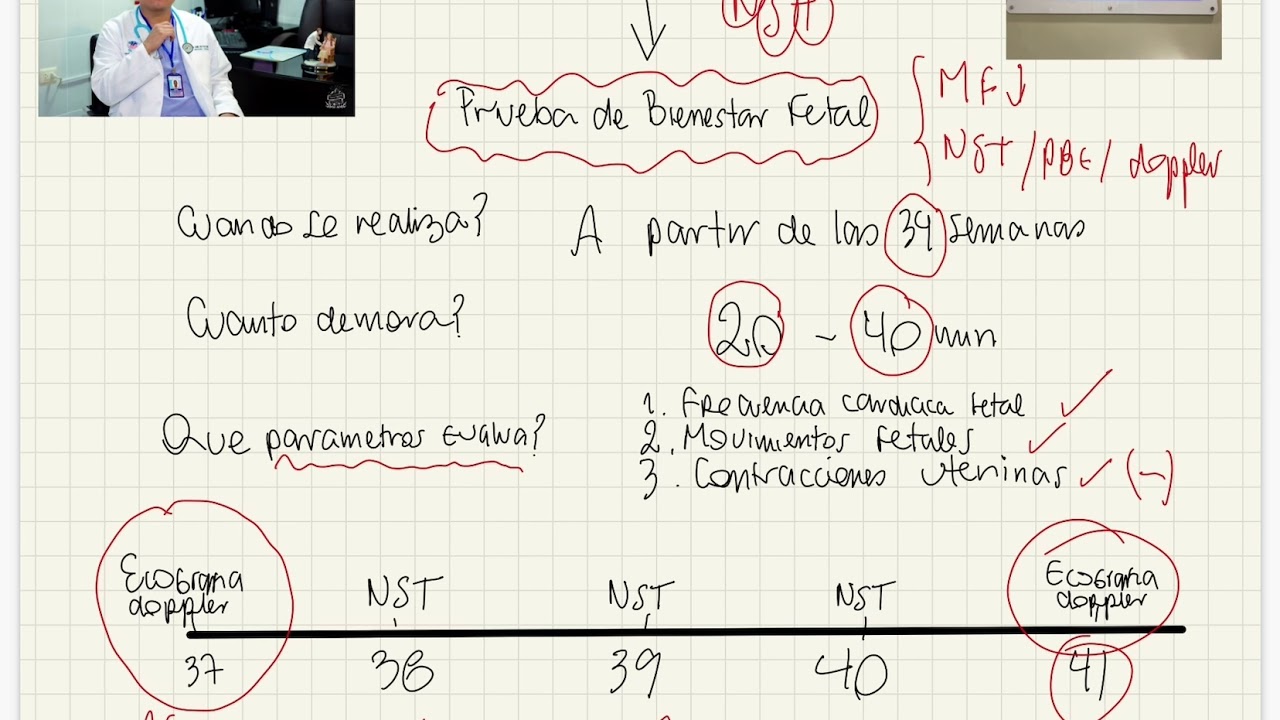 NST
Prueba de Bienestar Fetal
MFJ
NST / PBF / doppler
Cuando se realiza? A partir de las 34 semanas
Cuanto demora? 20 - 40 min
Que parametros evalua?
1. Frecuencia cardiaca fetal
2. Movimientos Fetales
3. Contracciones uterinas (-)
Ecografia doppler
NST
NST
NST
Ecografia doppler
37 38 39 40 41